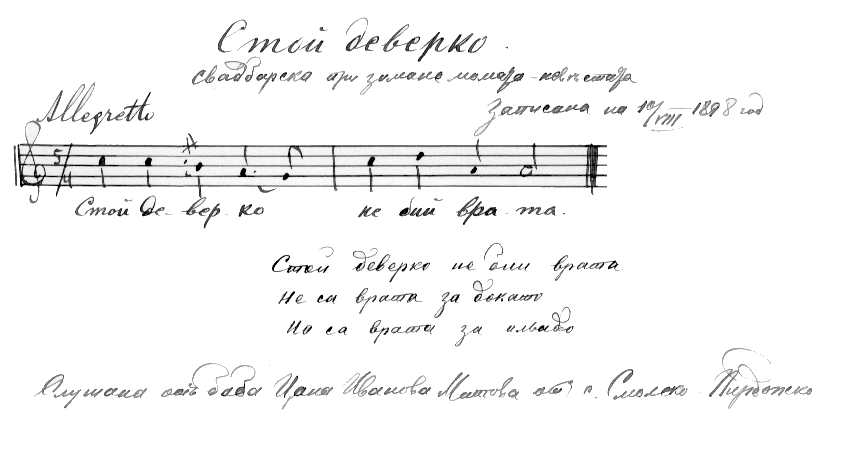 Стой деверко.
Свадбарска при зимане момата - невѣстата
Allegretto
Записана на 10/VIII 1898 год
5/4
Стой де- вер- ко не бий вра- та.
Стой деверко не бли врата
Не са врата за
Но са врата за
Слушана отъ баба Цана Иванова Митова от с. Смолско Пирдопско